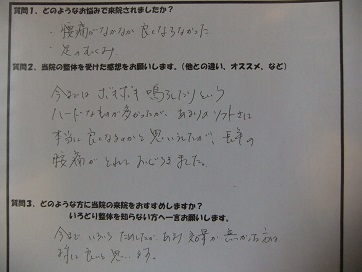 質問1．どのようなお悩みで来院されましたか？
・腰痛がなかなか良くならなかった
・足のむくみ
質問2．当院の整体を受けた感想をお願いします。（他との違い、オススメ、など）
今までは ボキボキ 鳴らしたりという
ハードなものが多かったが、あまりのソフトさに
本当に良くなるのかと思いましたが、長年の
腰痛がとれておどろきました。
質問3．どのような方に当院の来院をおすすめしますか？
いろどり整体を知らない方へ一言お願いします。
今まで いろいろ ためしたが あまり 効果が 無かった方
に良いと思います。